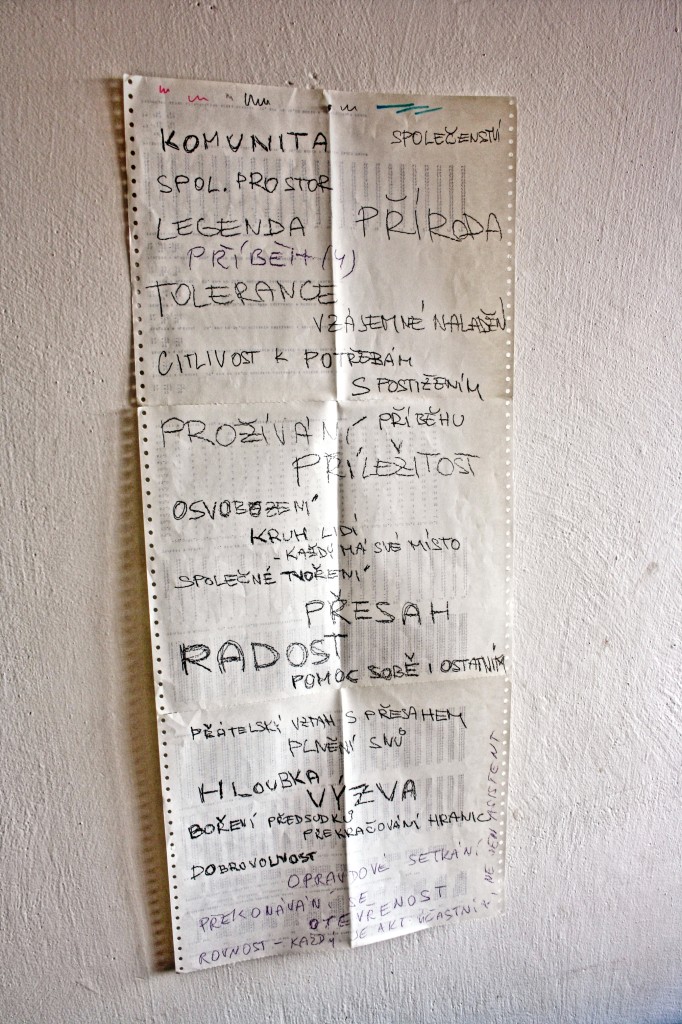 KOMUNITA
SPOLEČENSTVÍ
SPOL. PROSTOR
LEGENDA
PŘÍRODA
PŘÍBĚH (Y)
TOLERANCE
VZÁJEMNÉ NALADĚNÍ
CITLIVOST K POTŘEBÁM
S POSTIŽENÍM
PROŽÍVÁNÍ PŘÍBĚHU
PŘÍLEŽITOST
OSVOBOZENÍ
KRUH LIDÍ
- KAŽDÝ MÁ SVÉ MÍSTO
SPOLEČNÉ TVOŘENÍ
PŘESAH
RADOST
POMOC SOBĚ I OSTATNÍM
PŘÁTELSKÝ VZTAH S PŘESAHEM
PLNĚNÍ SNŮ
HLOUBKA
VÝZVA
BOŘENÍ PŘEDSUDKŮ
PŘEKRAČOVÁNÍ HRANIC
DOBROVOLNOST
OPRAVDOVÉ SETKÁNÍ
PŘEKONÁVÁNÍ SE
OTEVŘENOST
ROVNOST - KAŽDÝ JE AKT. ÚČASTNÍK
I NE JEN ASISTENT